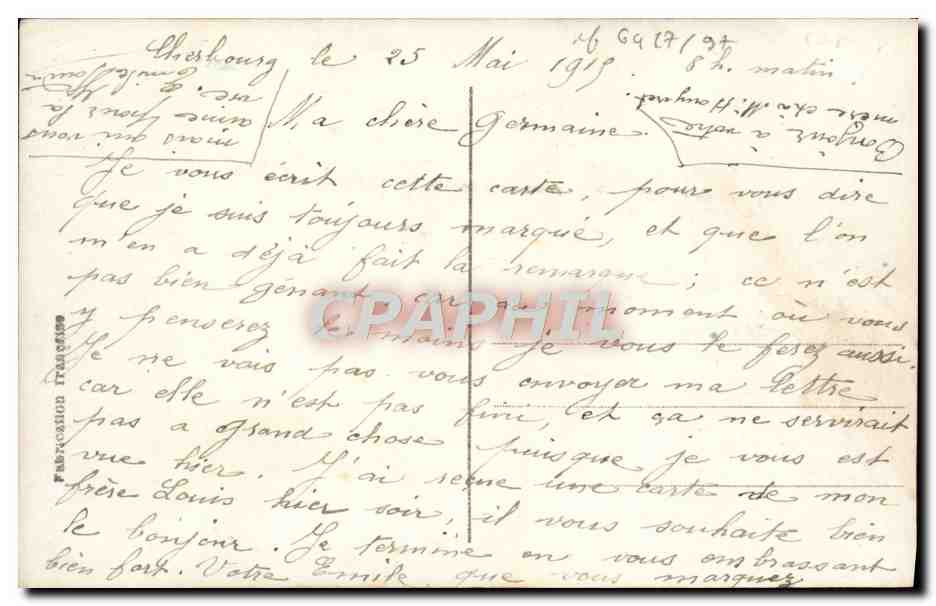 Cherbourg le 25 Mai 1915. 8 h. matin.
Ma chère Germaine.
Je vous écrit cette carte, pour vous dire
que je suis toujours marqué, et que l'on
m'en a déjà fait la remarque ; ce n'est
pas bien génant, car au moment où vous
y penserez le moins je vous le ferez aussi.
Je ne vais pas vous envoyer ma lettre
car elle n'est pas fini, et ça ne servirait
pas a grand chose puisque je vous est
vue hier. J'ai reçue une carte de mon
frère Louis hier soir, il vous souhaite bien
le bonjour. Je termine en vous embrassant
bien fort. Votre Emile que vous marquez
Bonjour à votre
mère et à M.
mois qui vous
aime pour la
vie
FABRICATION FRANÇAISE
CPAPHIL